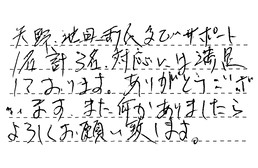 矢野、池田両氏までサポート
1名計3名、対応には満足
しております。ありがとうござ
います また何かありましたら
よろしくお願い致します。